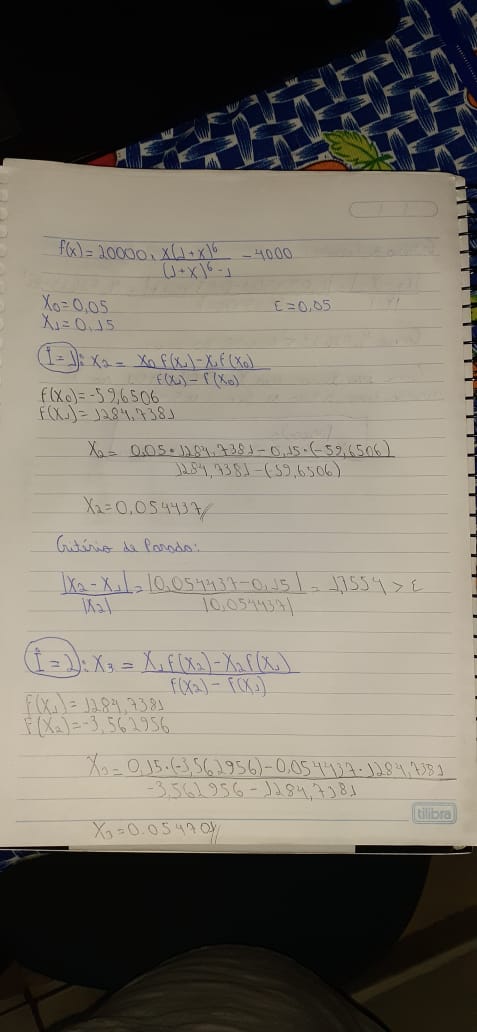 f(x) = 20000 . x(1+x)^6 / (1+x)^6 - 1 - 4000
X0 = 0,05 ε = 0,05
X1 = 0,15
i = 1: X2 = X0 f(X1) - X1 f(X0) / f(X1) - f(X0)
f(X0) = -59,6506
f(X1) = 1284,7381
X2 = 0,05 . 1284,7381 - 0,15 . (-59,6506) / 1284,7381 - (-59,6506)
X2 = 0,054437//
Critério de Parada:
|X2 - X1| / |X2| = |0,054437 - 0,15| / |0,054437| = 1,7554 > ε
i = 2: X3 = X1 f(X2) - X2 f(X1) / f(X2) - f(X1)
f(X1) = 1284,7381
f(X2) = -3,562956
X3 = 0,15 . (-3,562956) - 0,054437 . 1284,7381 / -3,562956 - 1284,7381
tilibra
X3 = 0,05470//